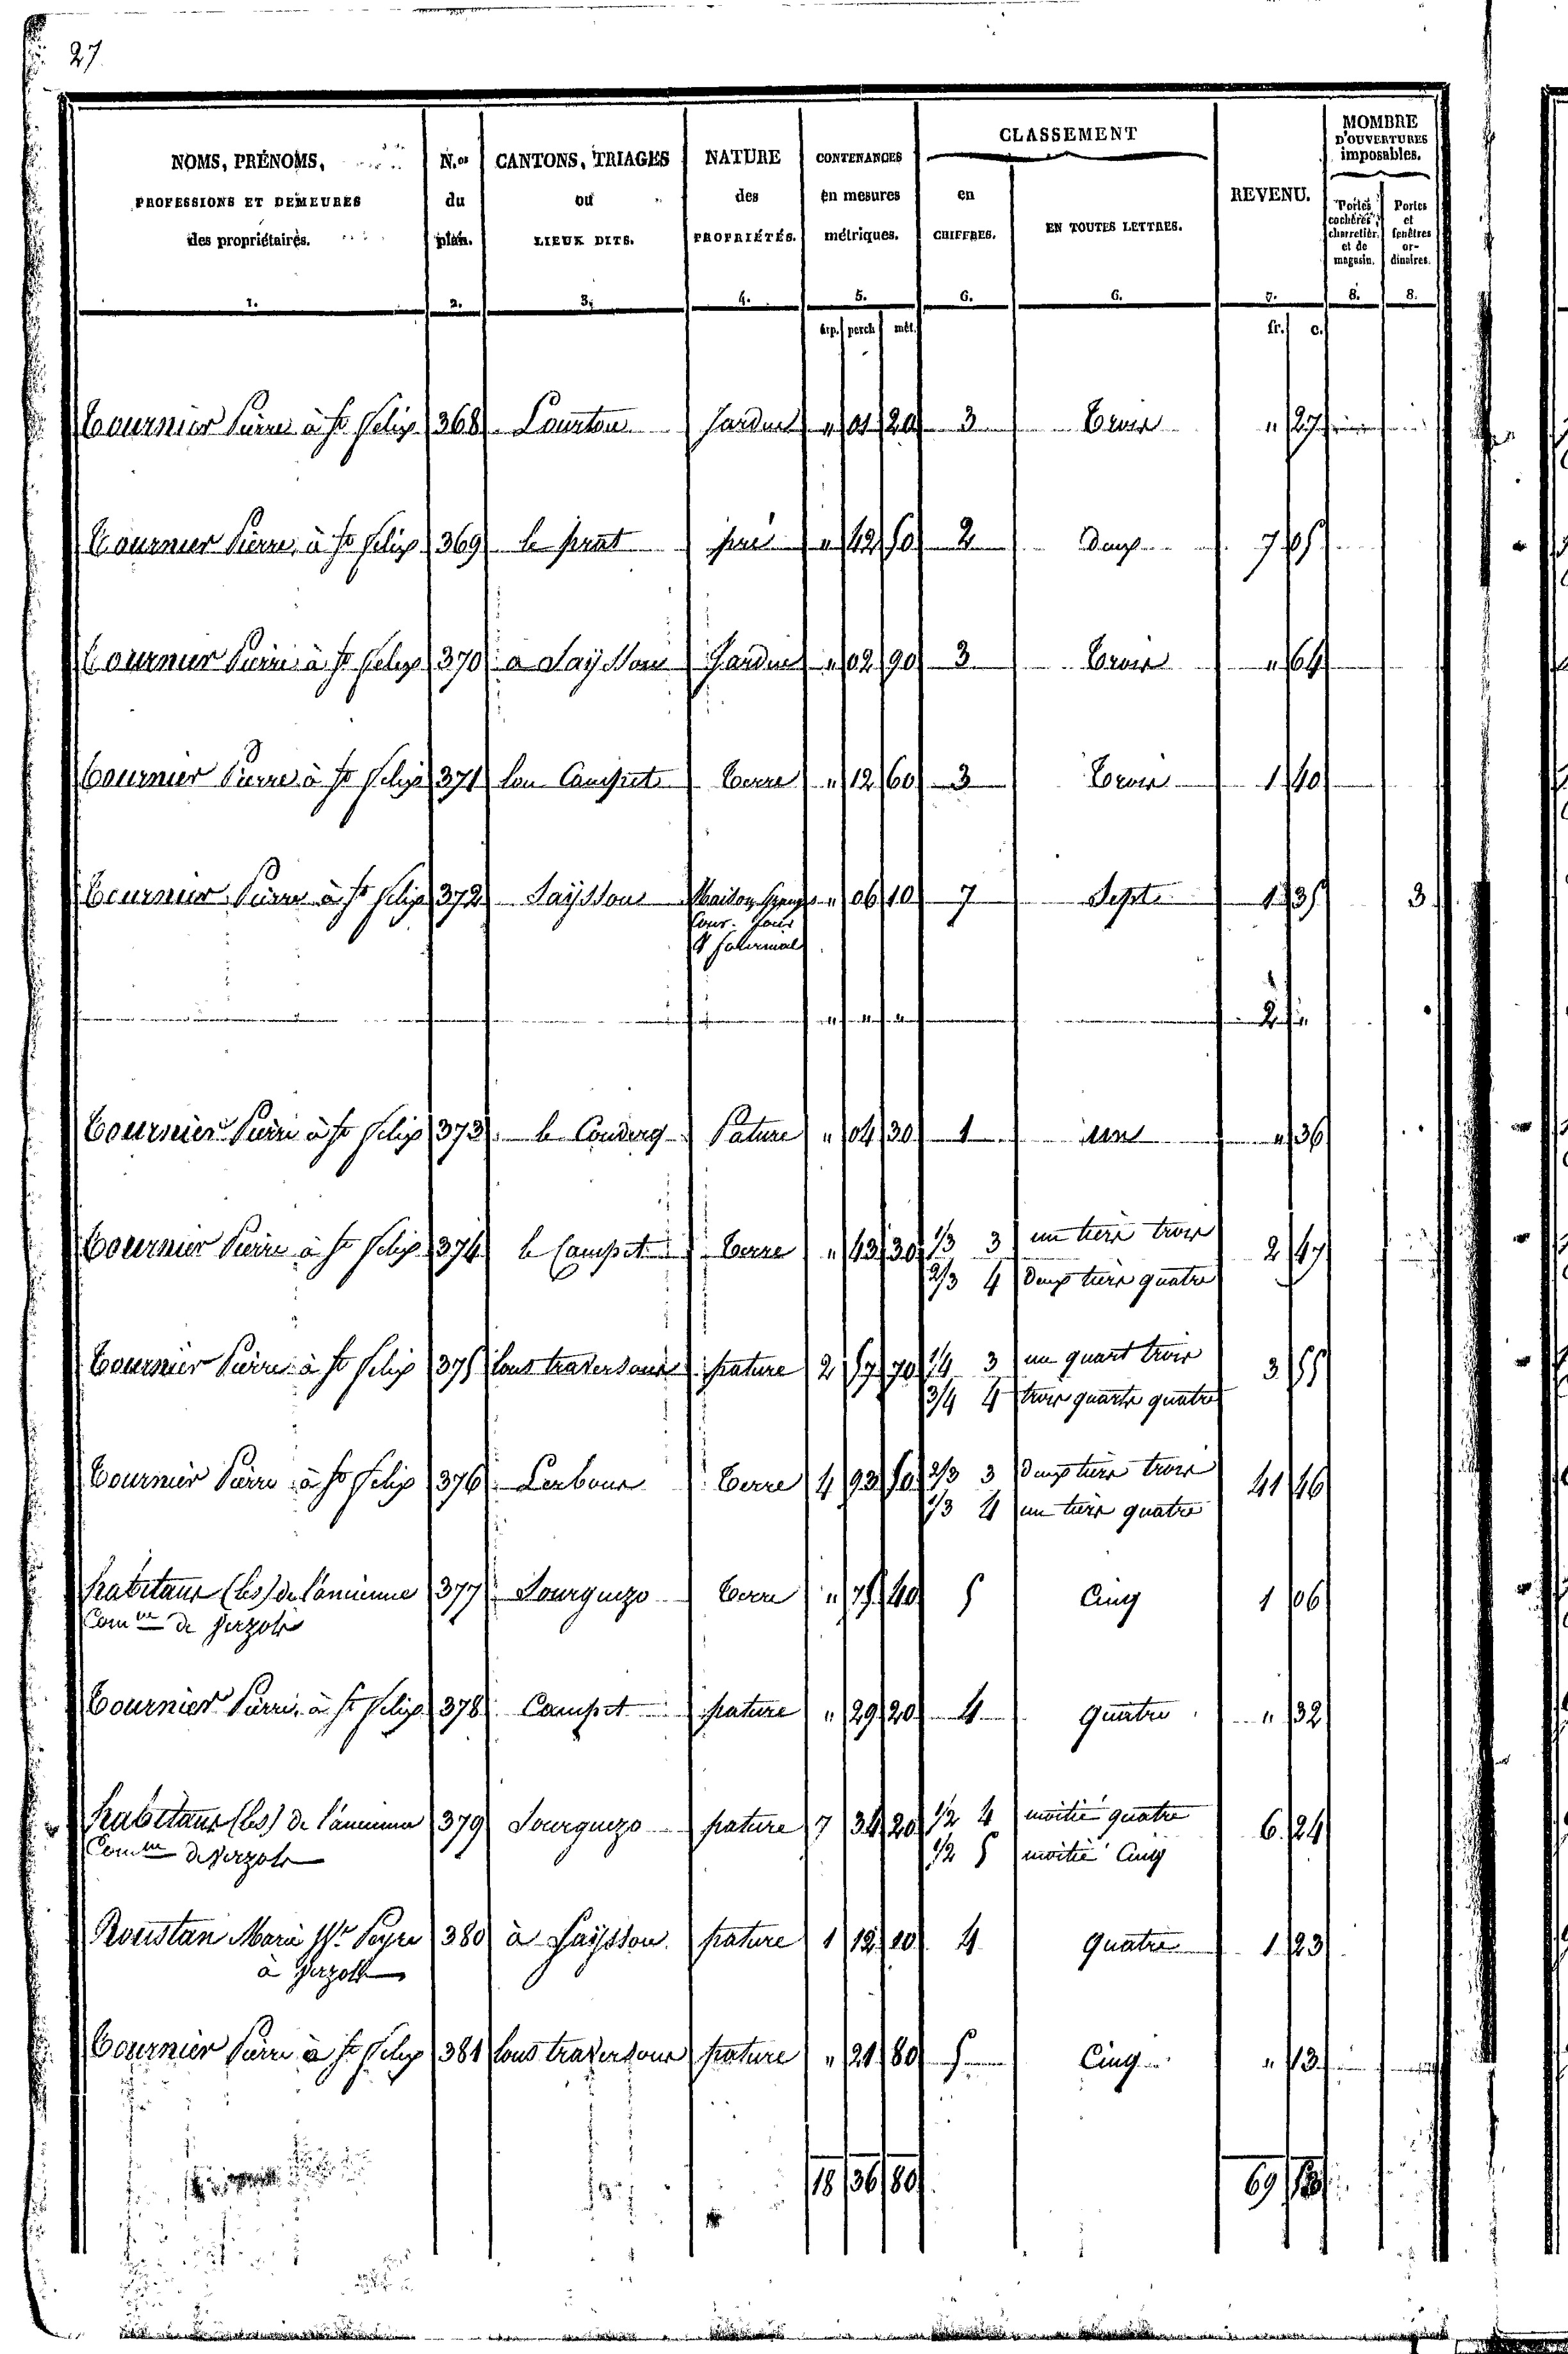 27
NOMS, PRÉNOMS, PROFESSIONS ET DEMEURES des propriétaires. 1.
N.os du plan. 2.
CANTONS, TRIAGES ou LIEUX DITS. 3.
NATURE des PROPRIÉTÉS. 4.
CONTENANCES en mesures métriques. 5.
CLASSEMENT
en CHIFFRES. 6.
EN TOUTES LETTRES. 6.
REVENU. 7.
MOMBRE D'OUVERTURES imposables.
Portes cochères, charretièr. et de magasin. 8.
Portes et fenêtres ordinaires. 8.
arp. perch. mèt. fr. c.
Tournier Pierre à St Felix 368 Jardin " 01 20 3 Trois " 27
Tournier Pierre à St Felix 369 le prat pré " 42 50 2 Deux 7 05
Tournier Pierre à St Felix 370 a Saÿssou Jardin " 02 90 3 Trois " 64
Tournier Pierre à St Felix 371 lou Campet Terre " 12 60 3 Trois 1 40
Tournier Pierre à St Felix 372 Saÿssou Maison " 06 10 7 Sept 1 35 3
Cour
" " " 2 "
Tournier Pierre à St Felix 373 le Couderq Pature " 04 30 1 une " 36
Tournier Pierre à St Felix 374 le Campet Terre " 43 30 1/3 3 un tiers trois 2 47
2/3 4 Deux tiers quatre
Tournier Pierre à St Felix 375 lous traversous pature 2 57 70 1/4 3 un quart trois 3 55
3/4 4 trois quarts quatre
Tournier Pierre à St Felix 376 Terre 4 93 50 2/3 3 Deux tiers trois 41 46
1/3 4 un tiers quatre
habitans (les) de l'ancienne 377 Sourguezo Terre " 75 40 5 Cinq 1 06
Comune de Verzols
Tournier Pierre à St Felix 378 Campet pature " 29 20 4 quatre " 32
habitans (les) de l'ancienne 379 Sourguezo pature 7 34 20 1/2 4 moitié quatre 6 24
Comune de Verzols 1/2 5 moitié Cinq
Roustan Marie Ve Peyre 380 à Saÿssou pature 1 12 10 4 quatre 1 23
à Verzols
Tournier Pierre à St Felix 381 lous traversous pature " 21 80 5 Cinq " 13
18 36 80 69